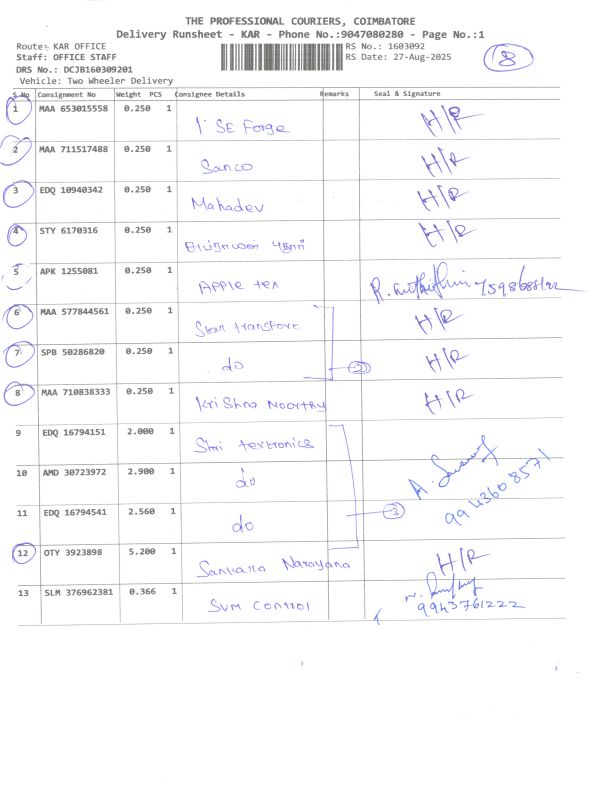 THE PROFESSIONAL COURIERS, COIMBATORE
Delivery Runsheet - KAR - Phone No.:9047080280 - Page No.:1
8
Route: KAR OFFICE RS No.: 1603092
Staff: OFFICE STAFF RS Date: 27-Aug-2025
DRS No.: DCJB160309201
Vehicle: Two Wheeler Delivery
S.No Consignment No Weight PCS Consignee Details Remarks Seal & Signature
1 MAA 653015558 0.250 1 SE Forge H/R
2 MAA 711517488 0.250 1 Sanco H/R
3 EDQ 10940342 0.250 1 Mahadev H/R
4 STY 6170316 0.250 1 H/R
5 APK 1255081 0.250 1 Apple tex
6 MAA 577844561 0.250 1 Star transfort H/R
7 SPB 50286820 0.250 1 do 2 H/R
8 MAA 710838333 0.250 1 Krishna Moorthy H/R
9 EDQ 16794151 2.000 1 Shri textronics
10 AMD 30723972 2.900 1 do 9943608571
11 EDQ 16794541 2.560 1 do 3
12 OTY 3923898 5.200 1 Sankara Narayana H/R
13 SLM 376962381 0.366 1 SVM Control 9943761222